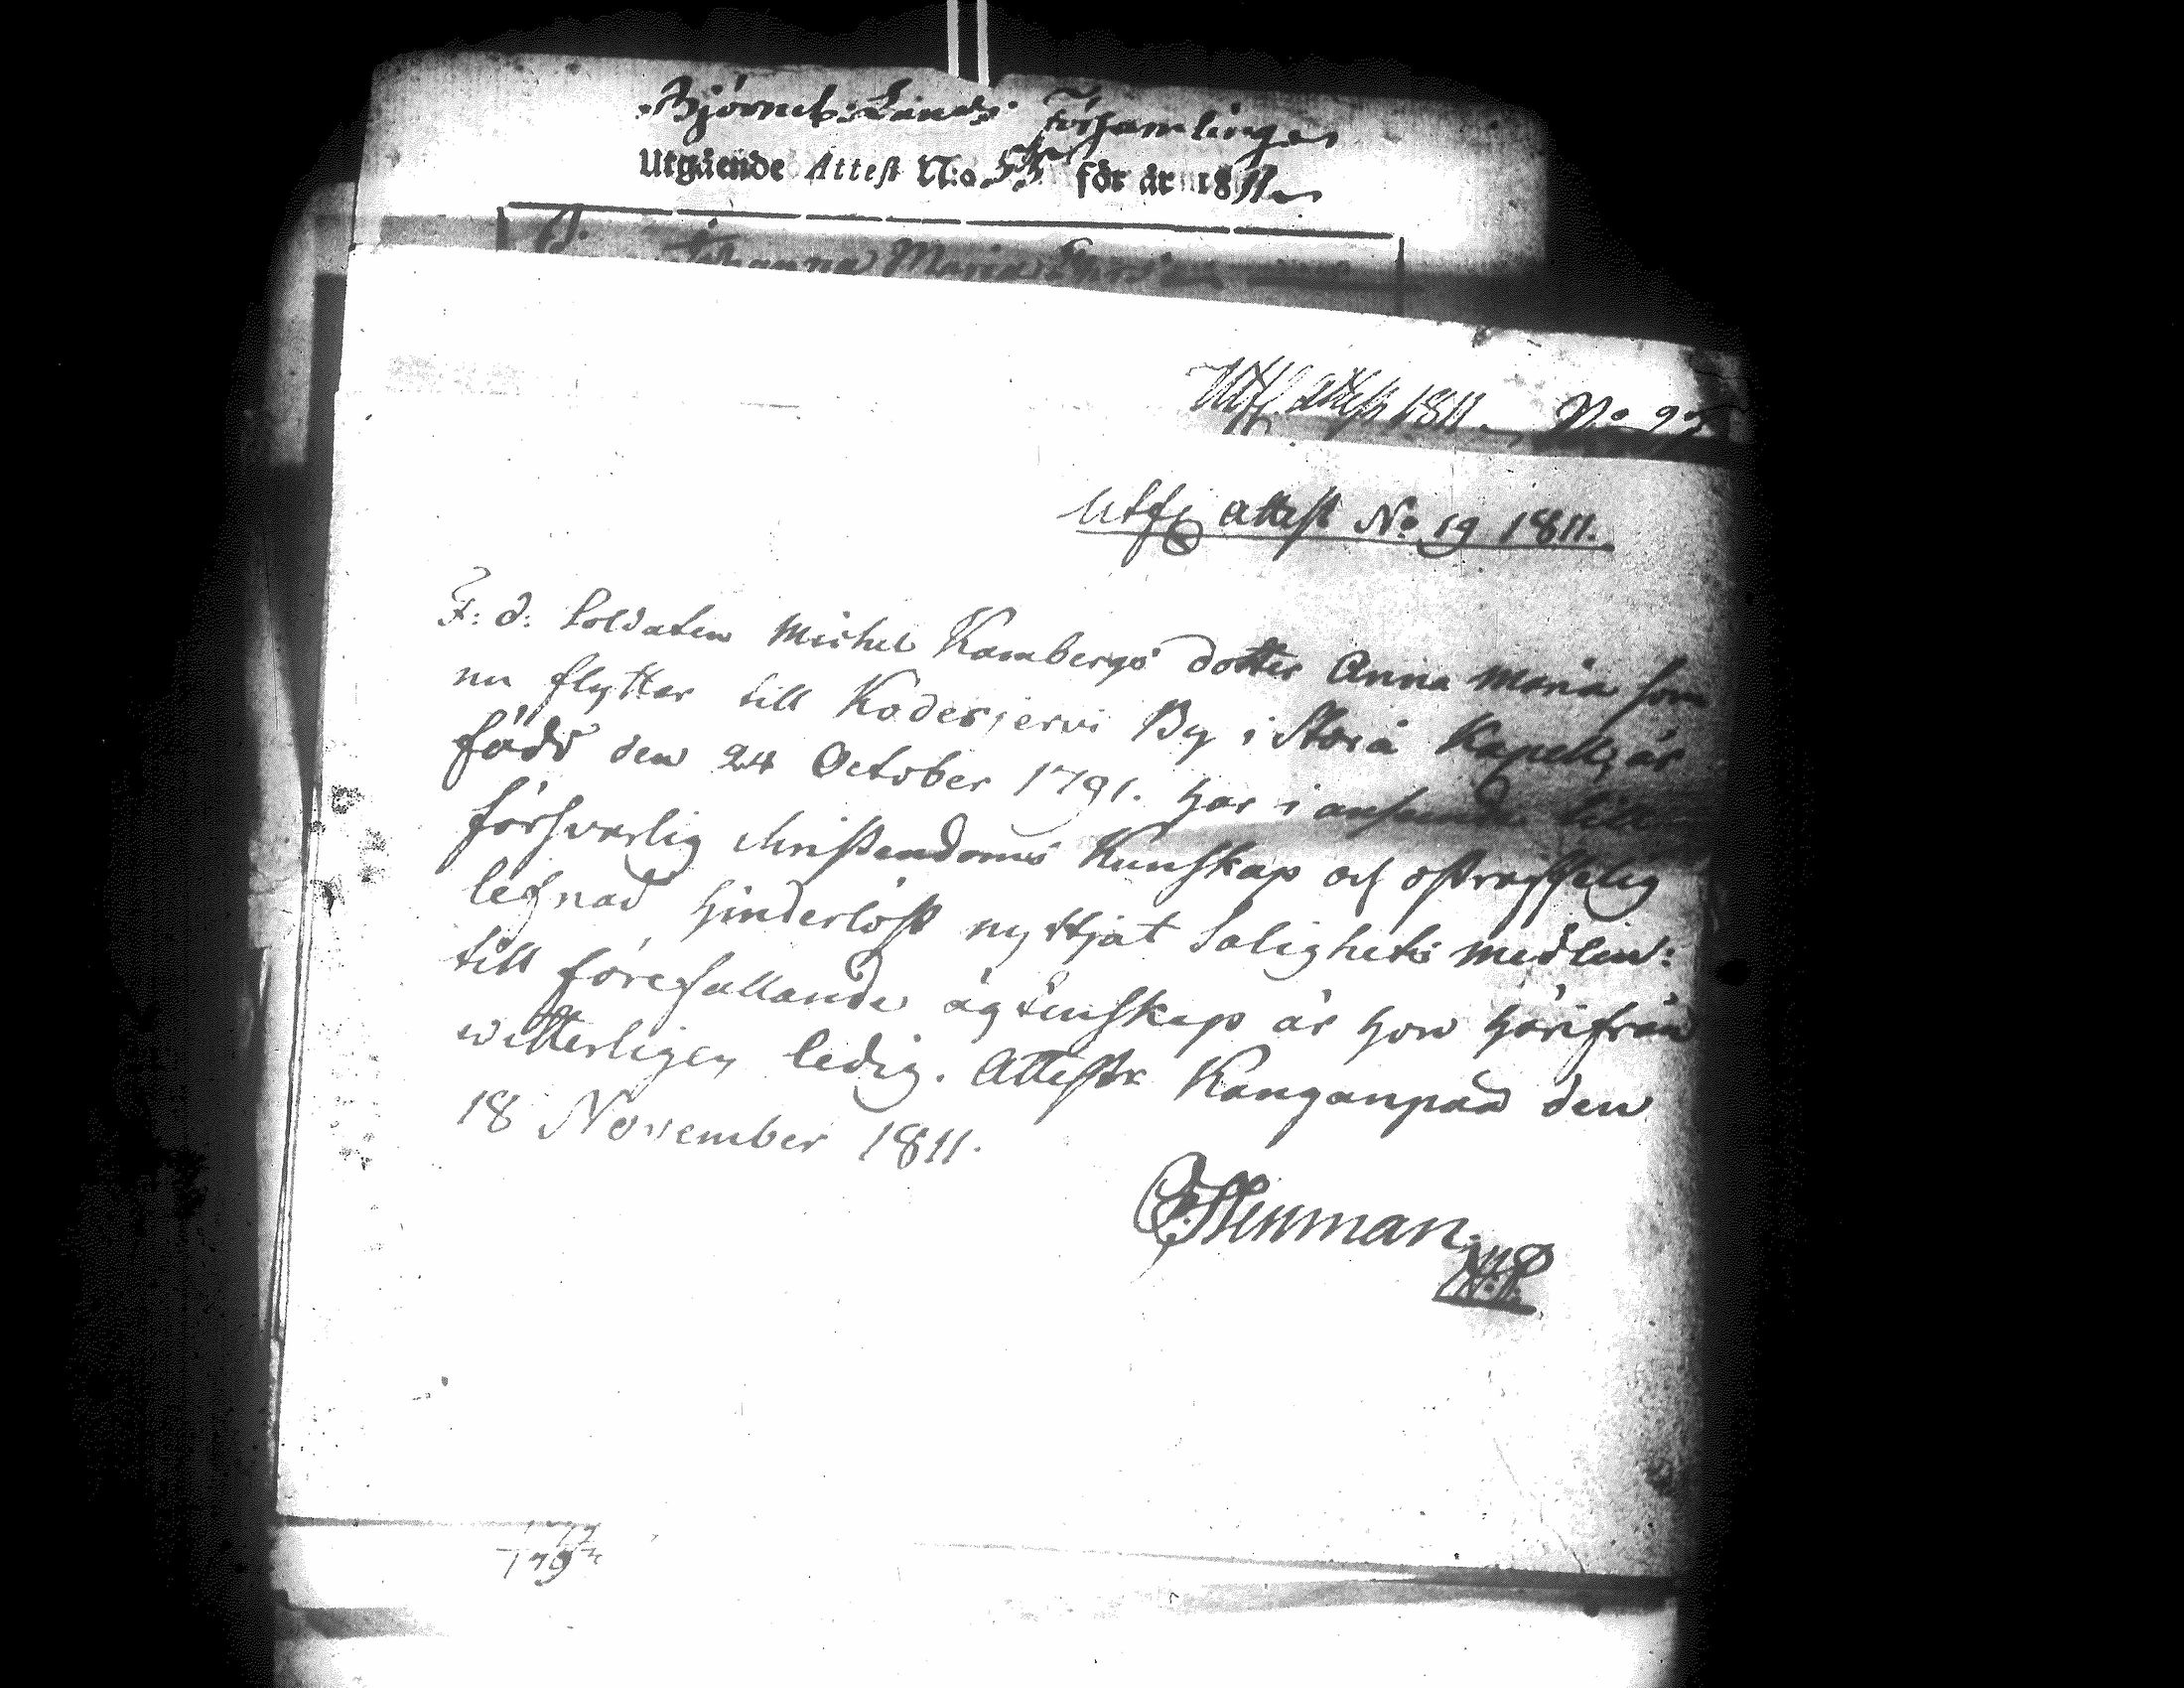 Björneb: Lands Församlinges
Utgående Attest N:o 55 för år 1811
Johanna Maria
Utfl. Attest 1811 No 93
Utfl. attest No 19 1811.
F: d: Soldaten Michel Kambergs dotter Anna Maria som
nu flyttar till Kodesjervi By i Storå Kapell, är
född den 24 October 1791. har i anseende till
försvarlig christendoms Kunskap och ostraffelig
lefnad hinderlöst nyttjat Salighets medlen:
till förefallande ägtenskap är hon härifrån
witterligen ledig. Attestr Kanganpää den
18 November 1811.
Stenman